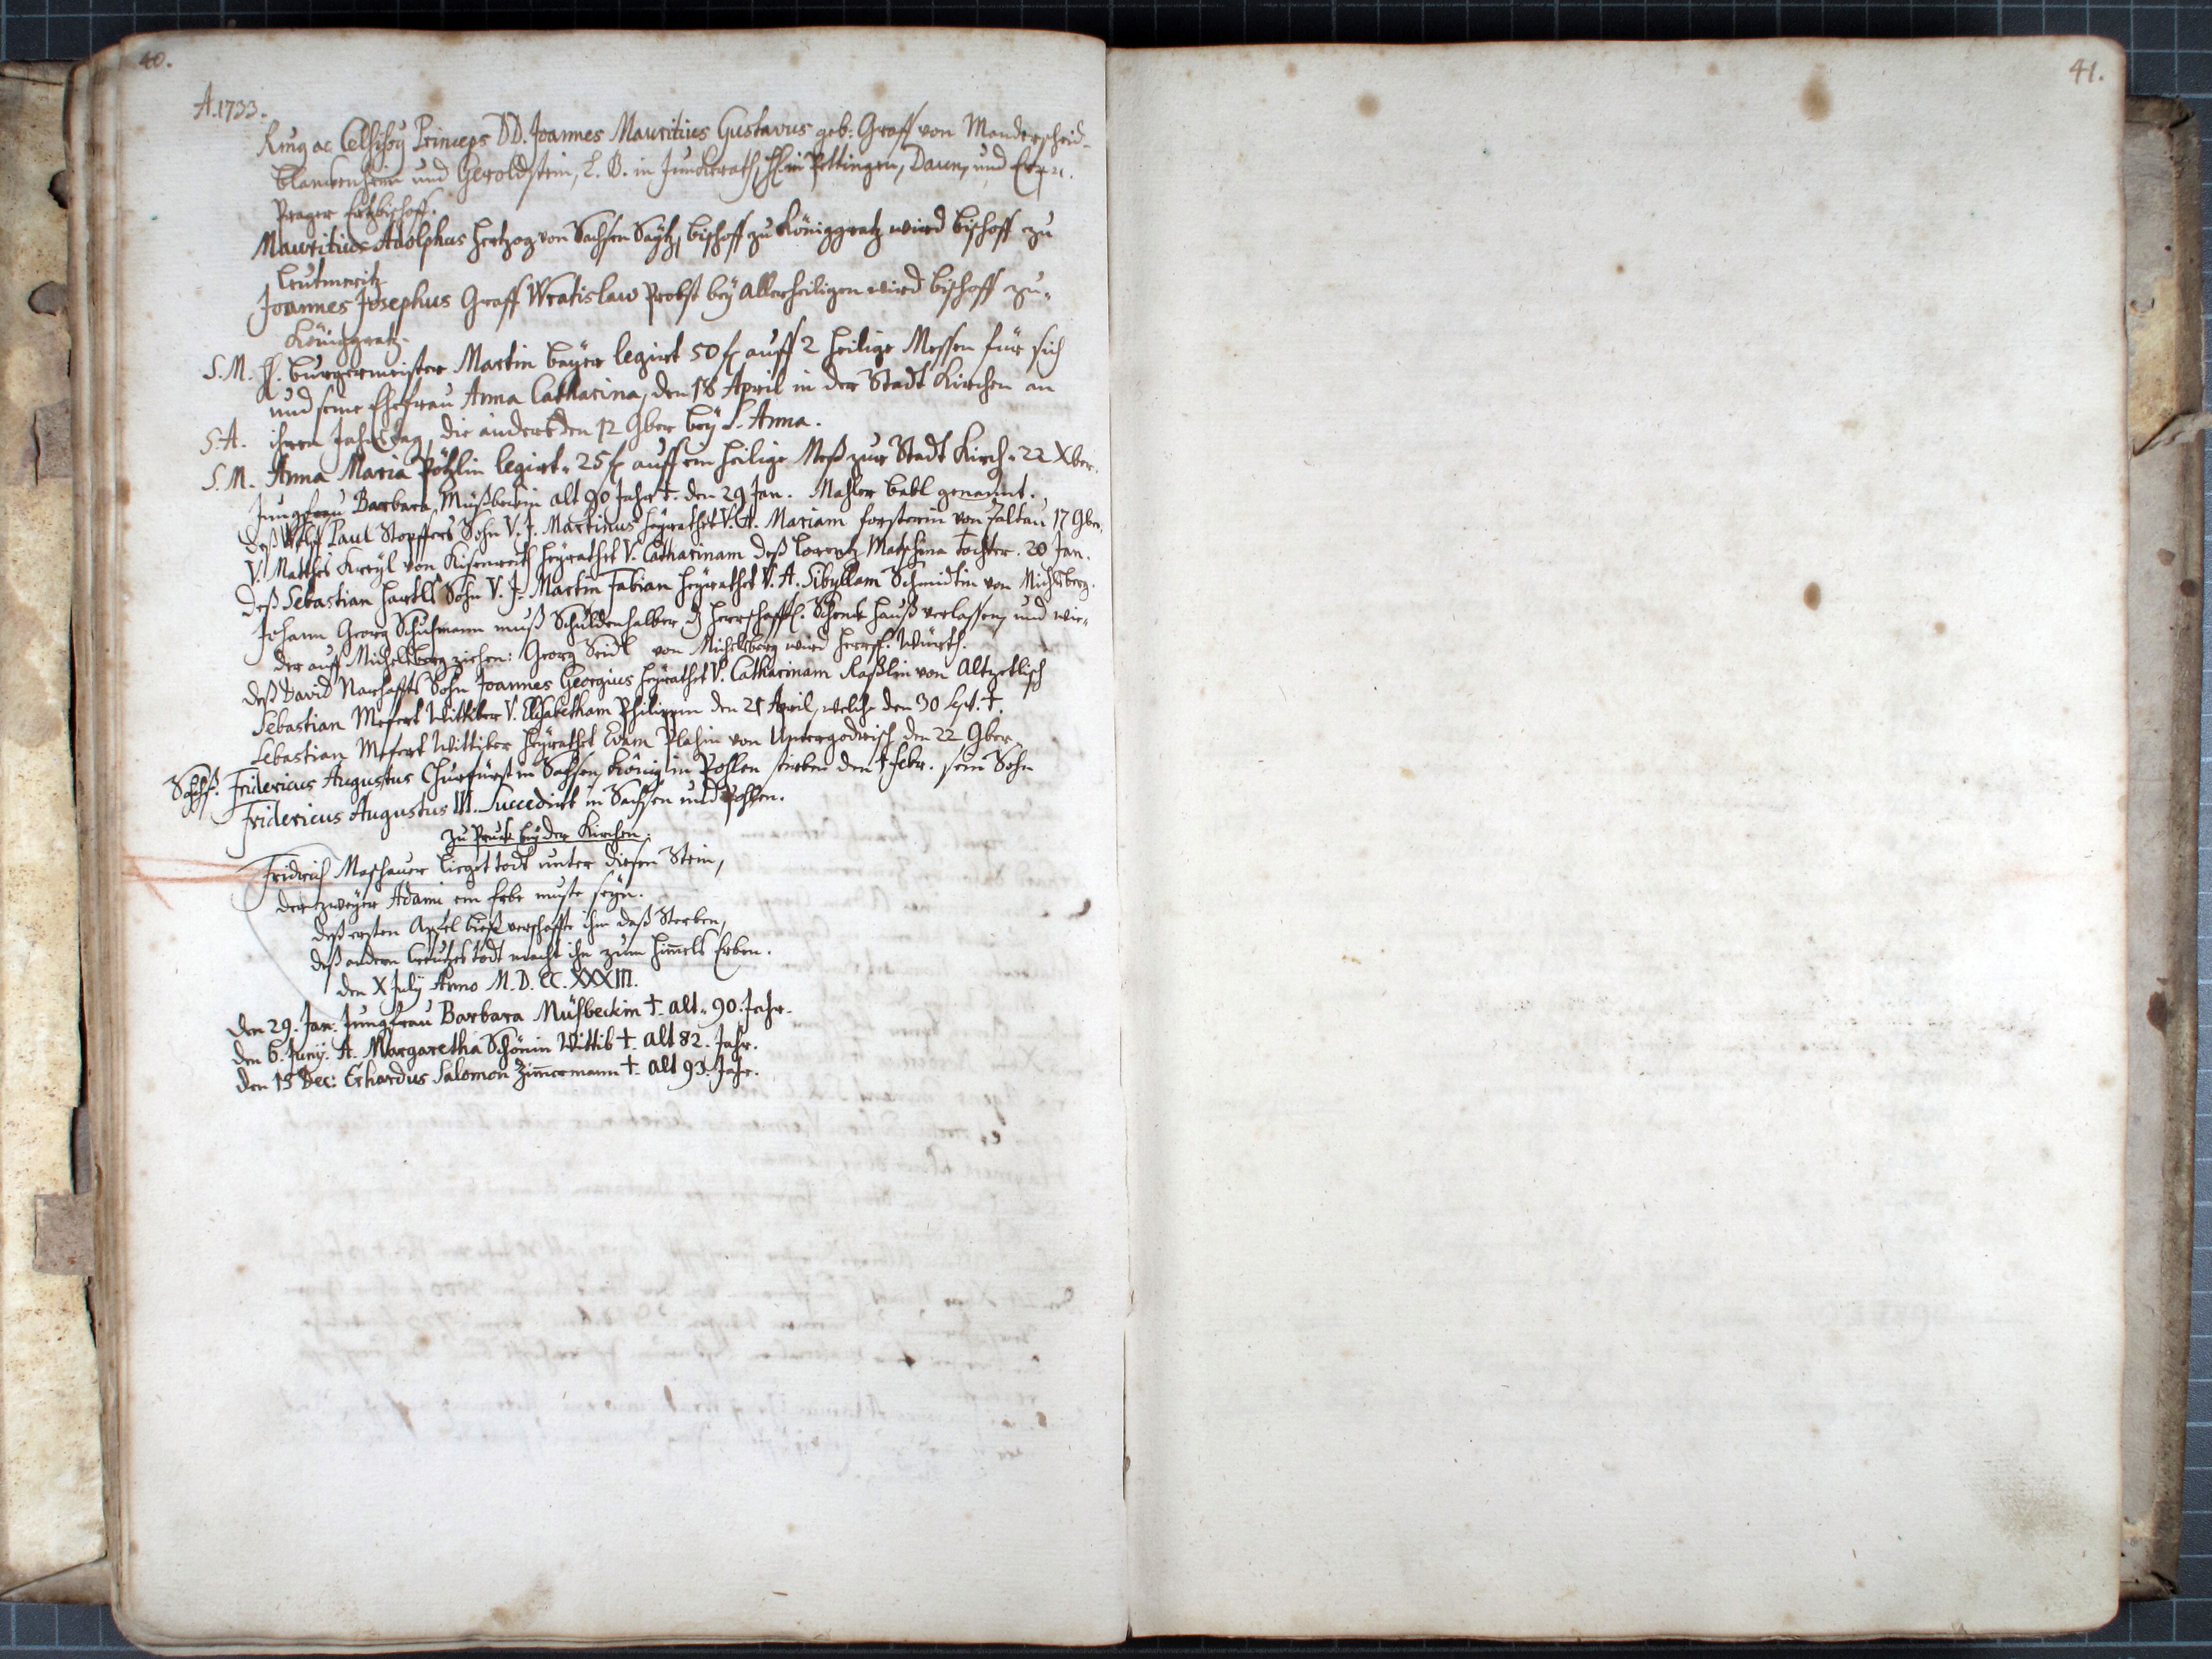 40.
A. 1733.
Rmg ac Celsissg Princeps DD. Joannes Mauritius Gustavus geb: Graff von Manderscheid-
blanckenheim und Geroldstein, L. B. in Junckerath, H. in Pettingen, Daun, und Erp
Prager Ertzbischoff.
Mauritius Adolphus Hertzog von Sachsen Saÿtz, bischoff zu Königgratz wird bischoff zu
Leutmeritz
Joannes Josephus Graff Wratislaw Probst beÿ Allerheiligen wird bischoff zu
Königgratz.
S. M. H. burgermeister Martin baÿer legirt 50 f auff 2 heilige Messen für sich
und seine Ehefrau Anna Catharina, den 18 April in der Stadt Kirchen an
S. A. ihren Jahrs tag, die andert den 12 9ber beÿ S. Anna.
S. M. Anna Maria Pötzlin legirt 25 f auff ein heilige Meß zur Stadt Kirch 22 Xber.
Jungfrau Barbara Müßbeckin alt 90 Jahr †. den 29 Jan. Mahler babl genannt.
Deß Paul Stopffers Sohn V. J. Martinus heÿrathet V. A. Mariam forsterin von Zaltau 17 9ber.
V. Matthes Kreÿl von Kiesenreith heÿrathet V. Catharinam deß Lorentz Matschina tochter. 20 Jan.
Deß Sebastian Hartls Sohn V. J. Martin Fabian heÿrathet V. A. Sibyllam Schmidtin von Michlsberg.
Johann Georg Schuhmann muß Schuldenhalber d herrschafftl. Schenck hauß verlassen, und wie-
der auff Michelsberg ziehen: Georg Seidl von Michelsberg wird herrsch. Würth.
Deß David Narhaffts Sohn Joannes Georgius heÿrathet V. Catharinam Raßlin von Altzetlisch
Sebastian Mefert Wittiber V. Elisabetham Philippin den 21 April, welche den 30 Sept. †.
Sebastian Mefert Wittiber heÿrathet Evam Plahin von Untergodrisch den 22 9ber.
Fridericus Augustus Churfürst in Sachsen, König in Pohlen stirbt den 1 Febr. sein Sohn
Fridericus Augustus III. Succedirt in Sachsen und Pohlen.
Zu Pruck beÿ der Kirchen.
Fridrich Maschauer lieget todt unter diesen Stein,
der zweÿer Adami ein Erbe muste seÿn.
Deß ersten Apfel bieß verschaffte ihm daß Sterben,
deß andern Creutzes todt macht ihn zum Him̄els Erben.
den X July Anno M. D. CC. XXXIII.
den 29. Jan: Jungfrau Barbara Müßbeckin †. alt 90. Jahr.
den 6. Junÿ. A. Margaretha Schönin Wittib †. alt 82. Jahr.
den 15 Dec: Erhardus Salomon Zim̄ermann †. alt 93. Jahr.
41.